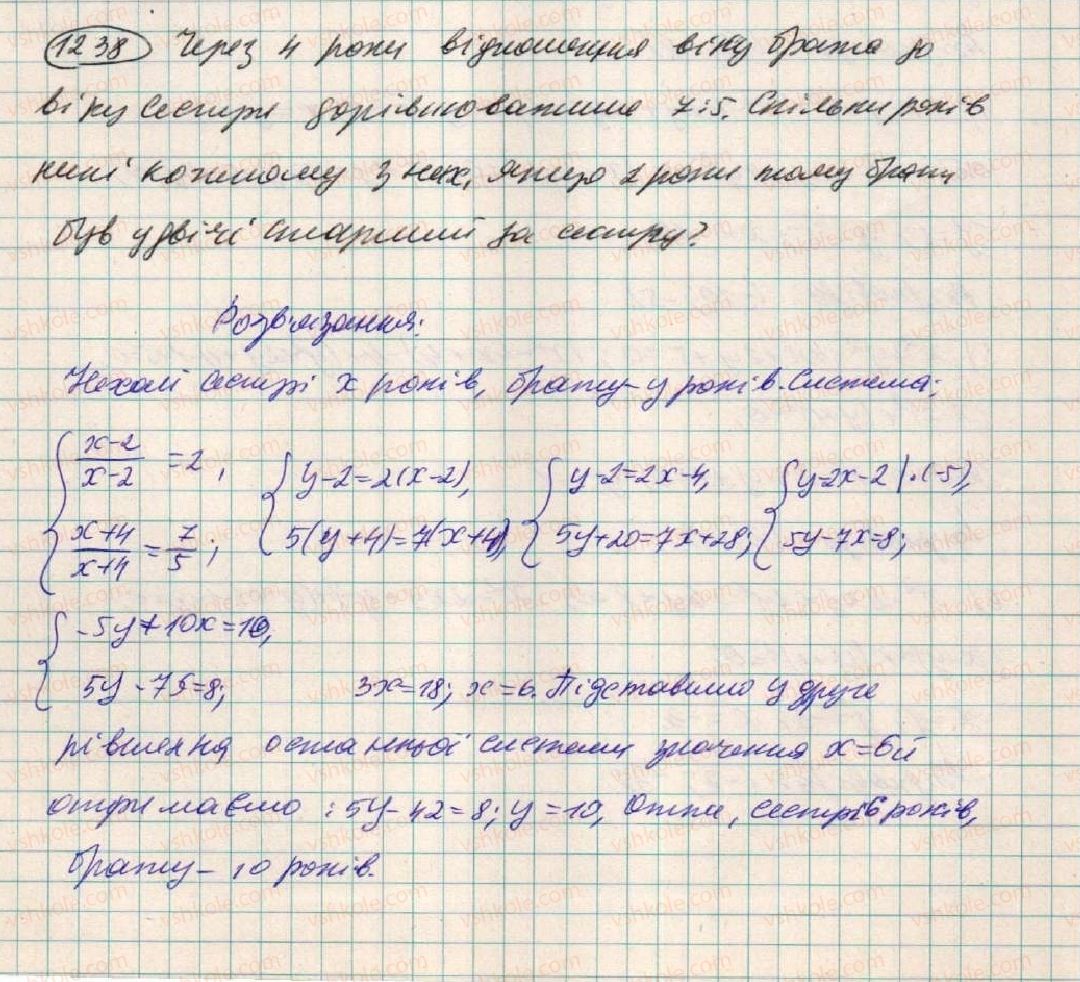 1238 Через 4 роки відношення віку брата до
віку сестри дорівнюватиме 7:5. Скільки років
нині кожному з них, якщо 2 роки тому брат
був удвічі старший за сестру?
Розв'язання:
Нехай сестрі x років, брату - y років. Система:
{ x-2/x-2 = 2, { y-2=2(x-2), { y-2=2x-4, { y-2x-2 |·(-5),
x+4/x+4 = 7/5; 5(y+4)=7(x+4), 5y+20=7x+28; 5y-7x=8;
{ -5y+10x=10,
5y-75=8; 3x=18; x=6. Підставимо у друге
рівняння останньої системи значення x=6 й
отримаємо: 5y-42=8; y=10, Отже, сестрі 6 років,
брату - 10 років.
vshkole.com